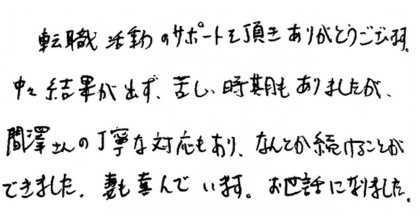 転職活動のサポートを頂きありがとうございます。
中々結果が出ず、苦しい時期もありましたが、
間澤さんの丁寧な対応もあり、なんとか続けることが
できました。妻も喜んでいます。お世話になりました。